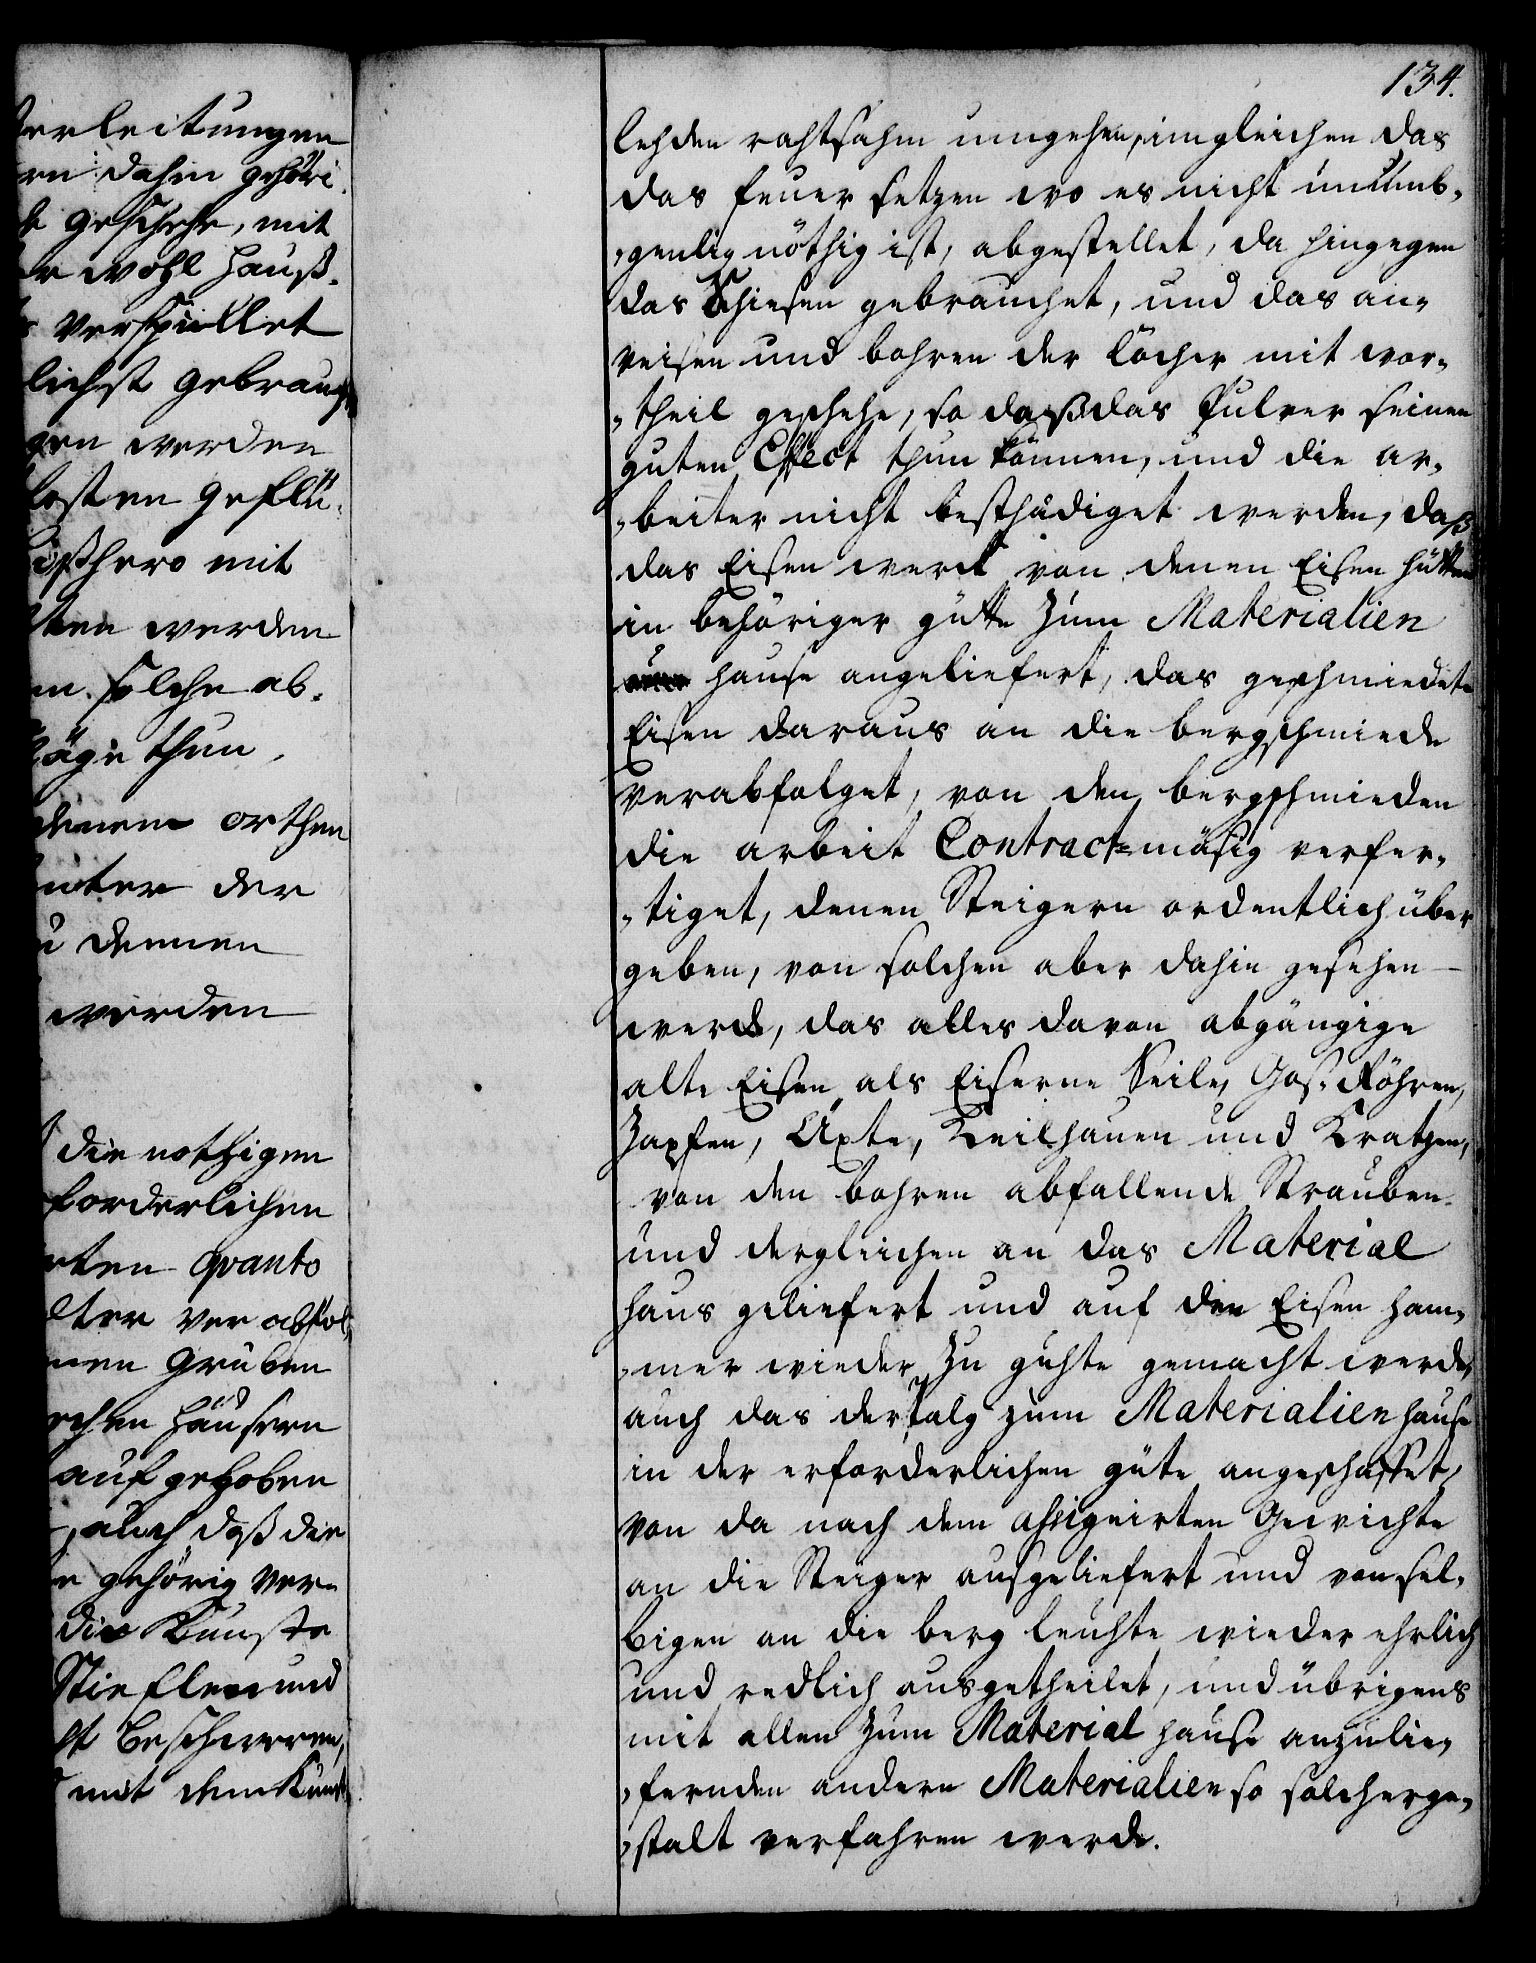 erleitungen
rn dahin gehöri
geschehe, mit
er wohl hauß-
verspillet
lichst gebrauch
gen werden
besten geflü-
ißhero mit
lten werden
en solche ab-
läge thun,
denen orthen
unter der
u dennen
werden
die nothigen
forderlichen
rten qvanto
lter verabfol,
nen Gruben
schen Häusern
aufgehoben
, auch daß die
e gehörig ver-
die Künste
Stieflen und
st beschweren,
mit dem Kunst
134.
lehden rahtsahm umgehen, imgleichen das
das feuer setzen wo es nicht unumb-
,genlig nöthig ist, abgestellet, da hingegen
das Schiesen gebrauchet, und das an-
weisen und bohren der löcher mit vor-
,theil geschehe, so daß das Pulver seinen
guten Effect thun können, und die ar-
,beiter nicht besthädiget werden, daß
das Eisenwerck von denen Eisen hütten
in behöriger gütte zum Materialien
hause angeliefert, das geschmiedete
Eisen daraus an die bergschmiede
verabfolget, von den bergschmieden
die arbeit Contract=mäsig verfer-
,tiget, denen Steigern ordentlich über
geben, von solchen aber dahin gesehen
werd, das alles davon abgängige
alte Eisen als Eiserne Seile, Gos-Röhren,
Zapfen, Äxte, Keilhauen und Kratzen,
von den bohren abfallende Strauben
und dergleichen an das Material
haus geliefert und auf den Eisen ham-
,mer wieder zu guhte gemacht werde,
auch das der Talg zum Materialienhause
in der erforderlichen güte angeschaffet,
von da nach dem assignirten Gewichte
an die Steiger ausgeliefert und von sel-
bigen an die berg leuhte wieder ehrlich
und redlich ausgetheilet, und übrigens
mit allen zum Material hause anzulie-
,fernden andern Materialien so solcherge-
,stalt verfahren werde.